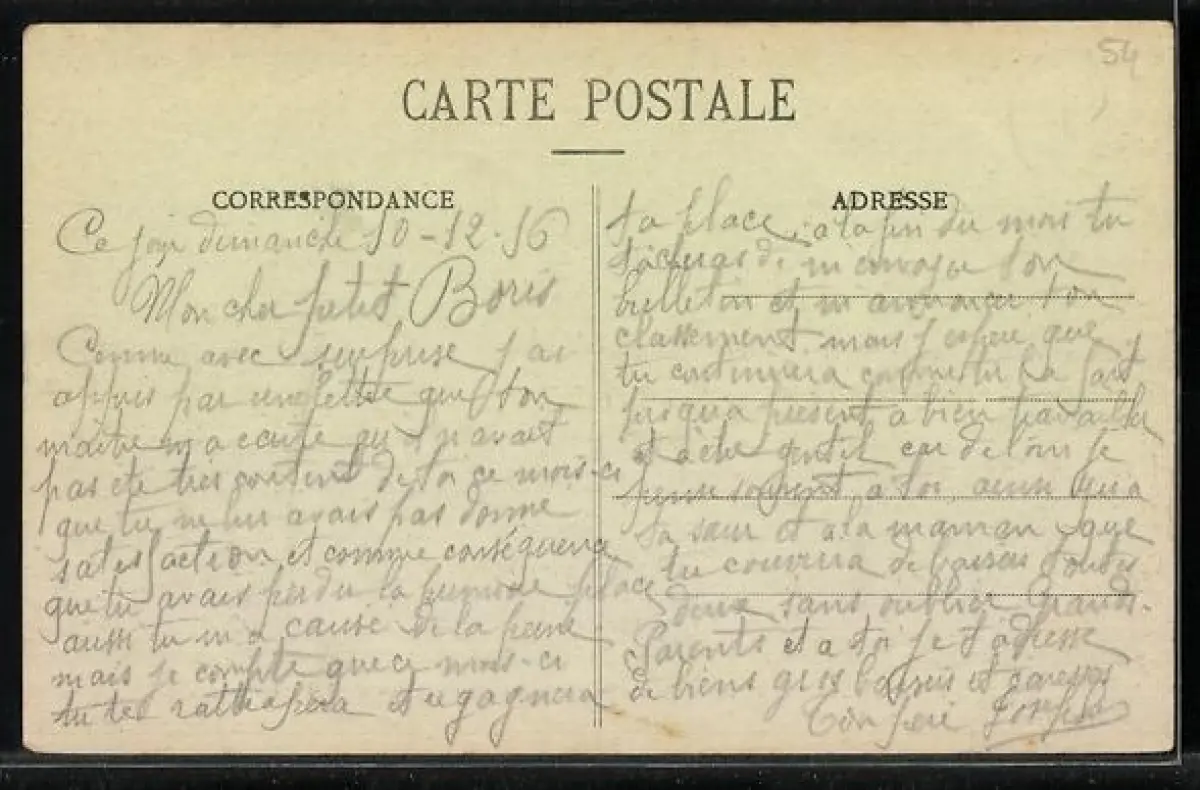 54
CARTE POSTALE
CORRESPONDANCE
Ce jour dimanche 10-12-16
Mon cher petit Boris
Comme avec surprise j'ai
appris par une lettre que ton
maitre m'a ecrite qu'il n'avait
pas eté tres content de toi ce mois-ci
que tu ne lui avais pas donné
satisfaction et comme conséquence
que tu avais perdu la premiere place
aussi tu m'a causé de la peine
mais je compte que ce mois-ci
tu te rattrapera et regagnera
ADRESSE
ta place, a la fin du mois tu
tacheras de m'envoyer ton
bulletin et m'annoncer ton
classement, mais j'espere que
tu continuera comme tu l'a fait
jusqu'a présent a bien travailler
et a être gentil car de loin je
pense souvent a toi, ainsi qu'a
ta sœur et a la maman que
tu couvrira de baisers toutes
deux sans oublier Grands-
Parents et a toi je t'adresse
de biens gros baisers et caresses
Ton pere Joseph